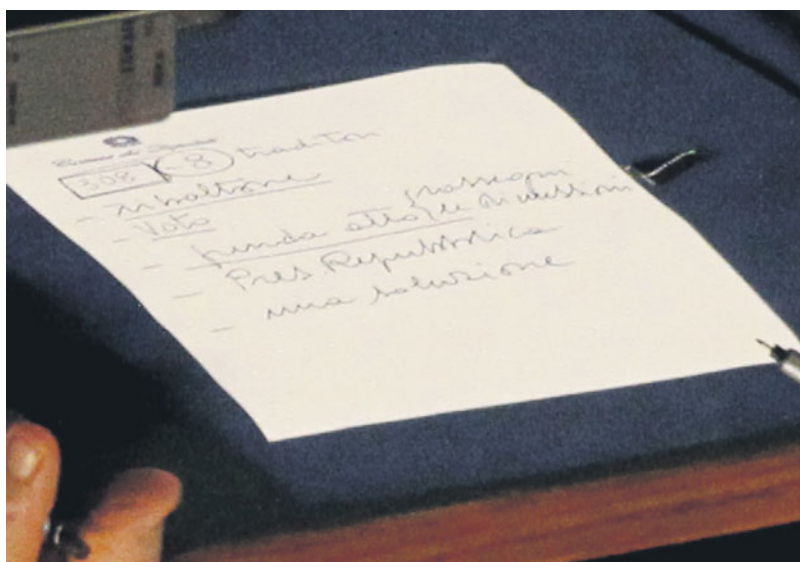 Camera dei Deputati
308 -8 traditori
- ribaltone
- Voto
- prenda atto rassegni
le dimissioni
- Pres Repubblica
- una soluzione